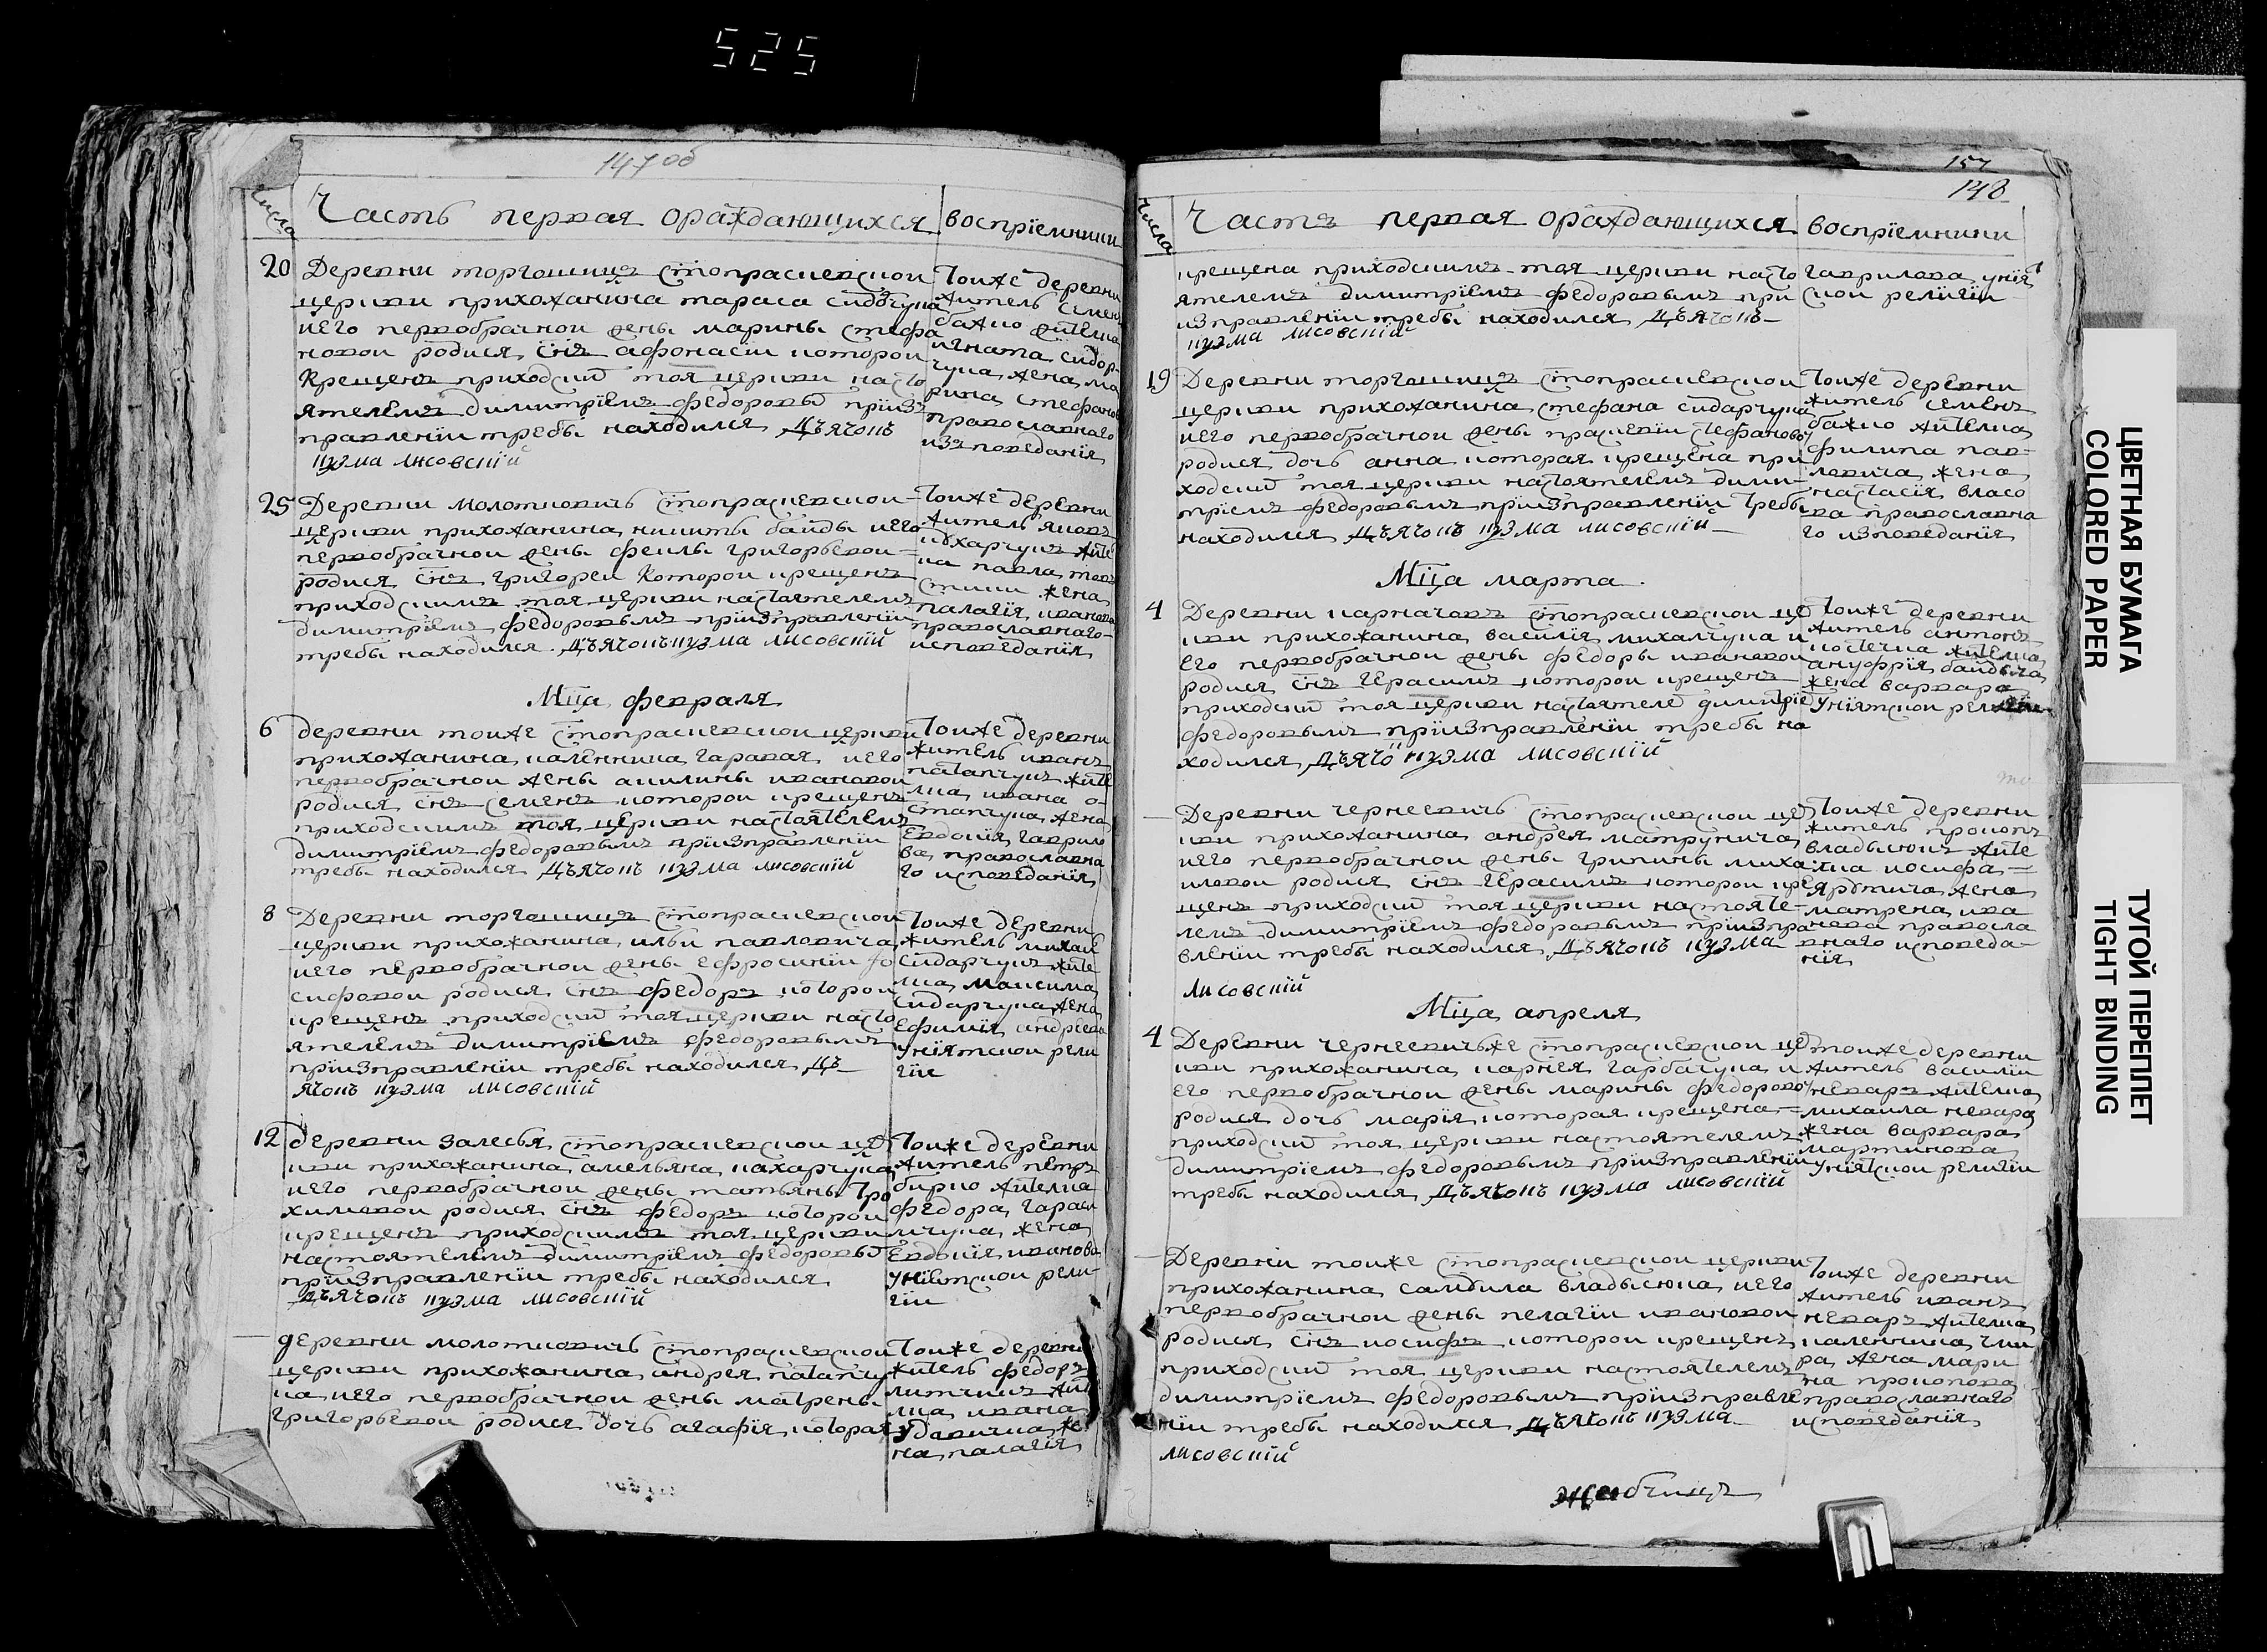 525
147об
числа
Часть первая ораждающихся
восприемники
20 Деревни торгошицъ стопрасневскои
церкви прихожанина тараса сидорчука
иего первобрачнои жены марины стефа
новои родися снъ афонасіи которои
крещенъ приходским тоя церкви насто
ятелемъ димитріемъ федоровы приизъ
правленіи требы находился дъячокъ
кузма лисовскій
тоиже деревни
житель семен
бажко жителка
игната сидор
чука жена ма
рина стефанов
православнаго
изповеданія
25 Деревни молотковичъ стопрасневскои
церкви прихожанина никиты байды иего
первобрачнои жены феклы григорьевои
родися снъ григореи которои крещенъ
приходскимъ тоя церкви настоятелемъ
димитріемъ федоровымъ приизправленіи
требы находился дъячокъ кузма лисовскій
тоиже деревни
житель яковъ
захарчукъ жите
ка павла
жена
палагія иванова
православнаго
исповеданія
Мца февраля
6 деревни тоиже стопрасневскои церкви
прихожанина каленника гаравая иего
первобрачнои жены акилины ивановои
родися снъ семенъ которои крещенъ
приходскимъ тоя церкви настоятелемъ
димитріемъ федоровымъ приизправленіи
требы находился дъячокъ кузма лисовскій
тоиже деревни
житель иванъ
патапчукъ жите
лка ивана о
стапчука жена
евдокія гаврило
ва православна
го исповеданія
8 Деревни торгошицъ стопрасневскои
церкви прихожанина ильи павловича
иего первобрачнои жены ефросиніи іо
сифовои родися снъ федоръ которои
крещенъ приходским тоя церкви насто
ятелемъ димитріемъ федоровымъ
приизправленіи требы находился дъ
ячокъ кузма лисовскій
тоиже деревни
житель михаил
сидарчукъ жите
лка максима
сидарчука жена
ефимія андреева
уніятскои рели
гіи
12 деревни залесья стопрасневскои це
кви прихожанина амельяна захарчука
иего первобрачнои жены татьяны тро
химовои родися снъ федоръ которои
крещенъ приходскимъ тоя церкви
настоятелемъ димитріемъ федоровы
приизправленіи требы находился
дъячокъ кузма лисовскій
тоиже деревни
житель петръ
бирко жителка
федора гараси
мчука жена
евдокія иванова
уніятскои рели
гіи
деревни молотковичъ стопрасневскои
церкви прихожанина андрея патапчу
ка иего первобрачнои жены матрены
григорьевои родися дочъ агафія которая
тоиже деревни
житель федоръ
жит
лка ивана
жe
на палагія
157
148
числа
Часть первая ораждающихся
восприемники
крещена приходскимъ тоя церкви насто
ятелемъ димитріемъ федоровымъ при
изправленіи требы находился дъячокъ
кузма лисовскій
гаврилова уніят
скои религіи
19 Деревни торгошицъ стопрасневскои
церкви прихожанина стефана сидарчука
иего первобрачнои жены стефановои
родися дочъ анна которая крещена при
ходским тоя церкви настоятелемъ дими
тріемъ федоровымъ приизправленіи требы
находился дъячокъ кузма лисовскій
тоиже деревни
житель семенъ
бажко жителка
филипа пав
ловича жена
настасія власо
ва православна
го изповеданія
Мца марта
4 Деревни карначовъ стопрасневскои це
кви прихожанина василія михалчука и
его первобрачнои жены федоры ивановои
родися снъ герасимъ которои крещенъ
приходским тоя церкви настоятеле димитріе
федоровымъ приизправленіи требы на
ходился дъячо кузма лисовскій
тоиже деревни
житель антонъ
костечка жителка
ануфрія байдыча
жена варвара
уніятскои религіи
Деревни чернеевичъ стопрасневскои це
кви прихожанина андрея матрунича
иего первобрачнои жены грипины миха
иловои родися снъ герасимъ которои кре
щенъ приходским тоя церкви настояте
лемъ димитріемъ федоровымъ приизпра
вленіи требы находился дъячокъ кузма
лисовскій
тоиже деревни
житель прокопъ
владысюкъ жите
лка иосифа
жена
матрена ива
нова правосла
внаго исповеда
нія
Мца апреля
4 Деревни чернеевичьже стопрасневскои це
кви прихожанина карнея гарбачука и
его первобрачнои жены марины федорово
родися дочъ марія которая крещена
приходским тоя церкви настоятелемъ
димитріемъ федоровымъ приизправленіи
требы находился дъячокъ кузма лисовскій
тоиже деревни
житель василіи
невар жителка
михаила невара
жена варвара
мартинова
уніятскои религіи
Деревни тоиже стопрасневскои церкви
прихожанина самойла владысюка иего
первобрачнои жены пелагіи ивановои
родися снъ иосифъ которои крещенъ
приходским тоя церкви настоятелемъ
димитріемъ федоровымъ приизправле
ніи требы находился дъячокъ кузма
лисовскій
тоиже деревни
житель иванъ
неваръ жителка
каленника
жена мари
на прокопова
православнаго
исповеданія
ЦВЕТНАЯ БУМАГА
COLORED PAPER
ТУГОЙ ПЕРЕПЛЕТ
TIGHT BINDING